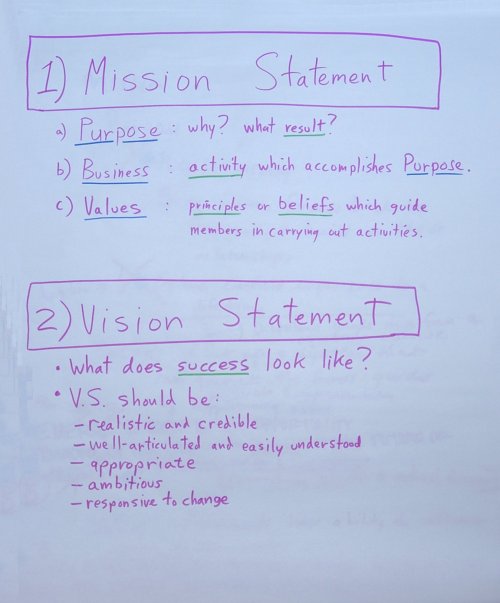 1) Mission Statement
a) Purpose : why? what result?
b) Business : activity which accomplishes Purpose.
c) Values : principles or beliefs which guide
members in carrying out activities.
2) Vision Statement
• What does success look like?
• V.S. should be:
– realistic and credible
– well-articulated and easily understood
– appropriate
– ambitious
– responsive to change